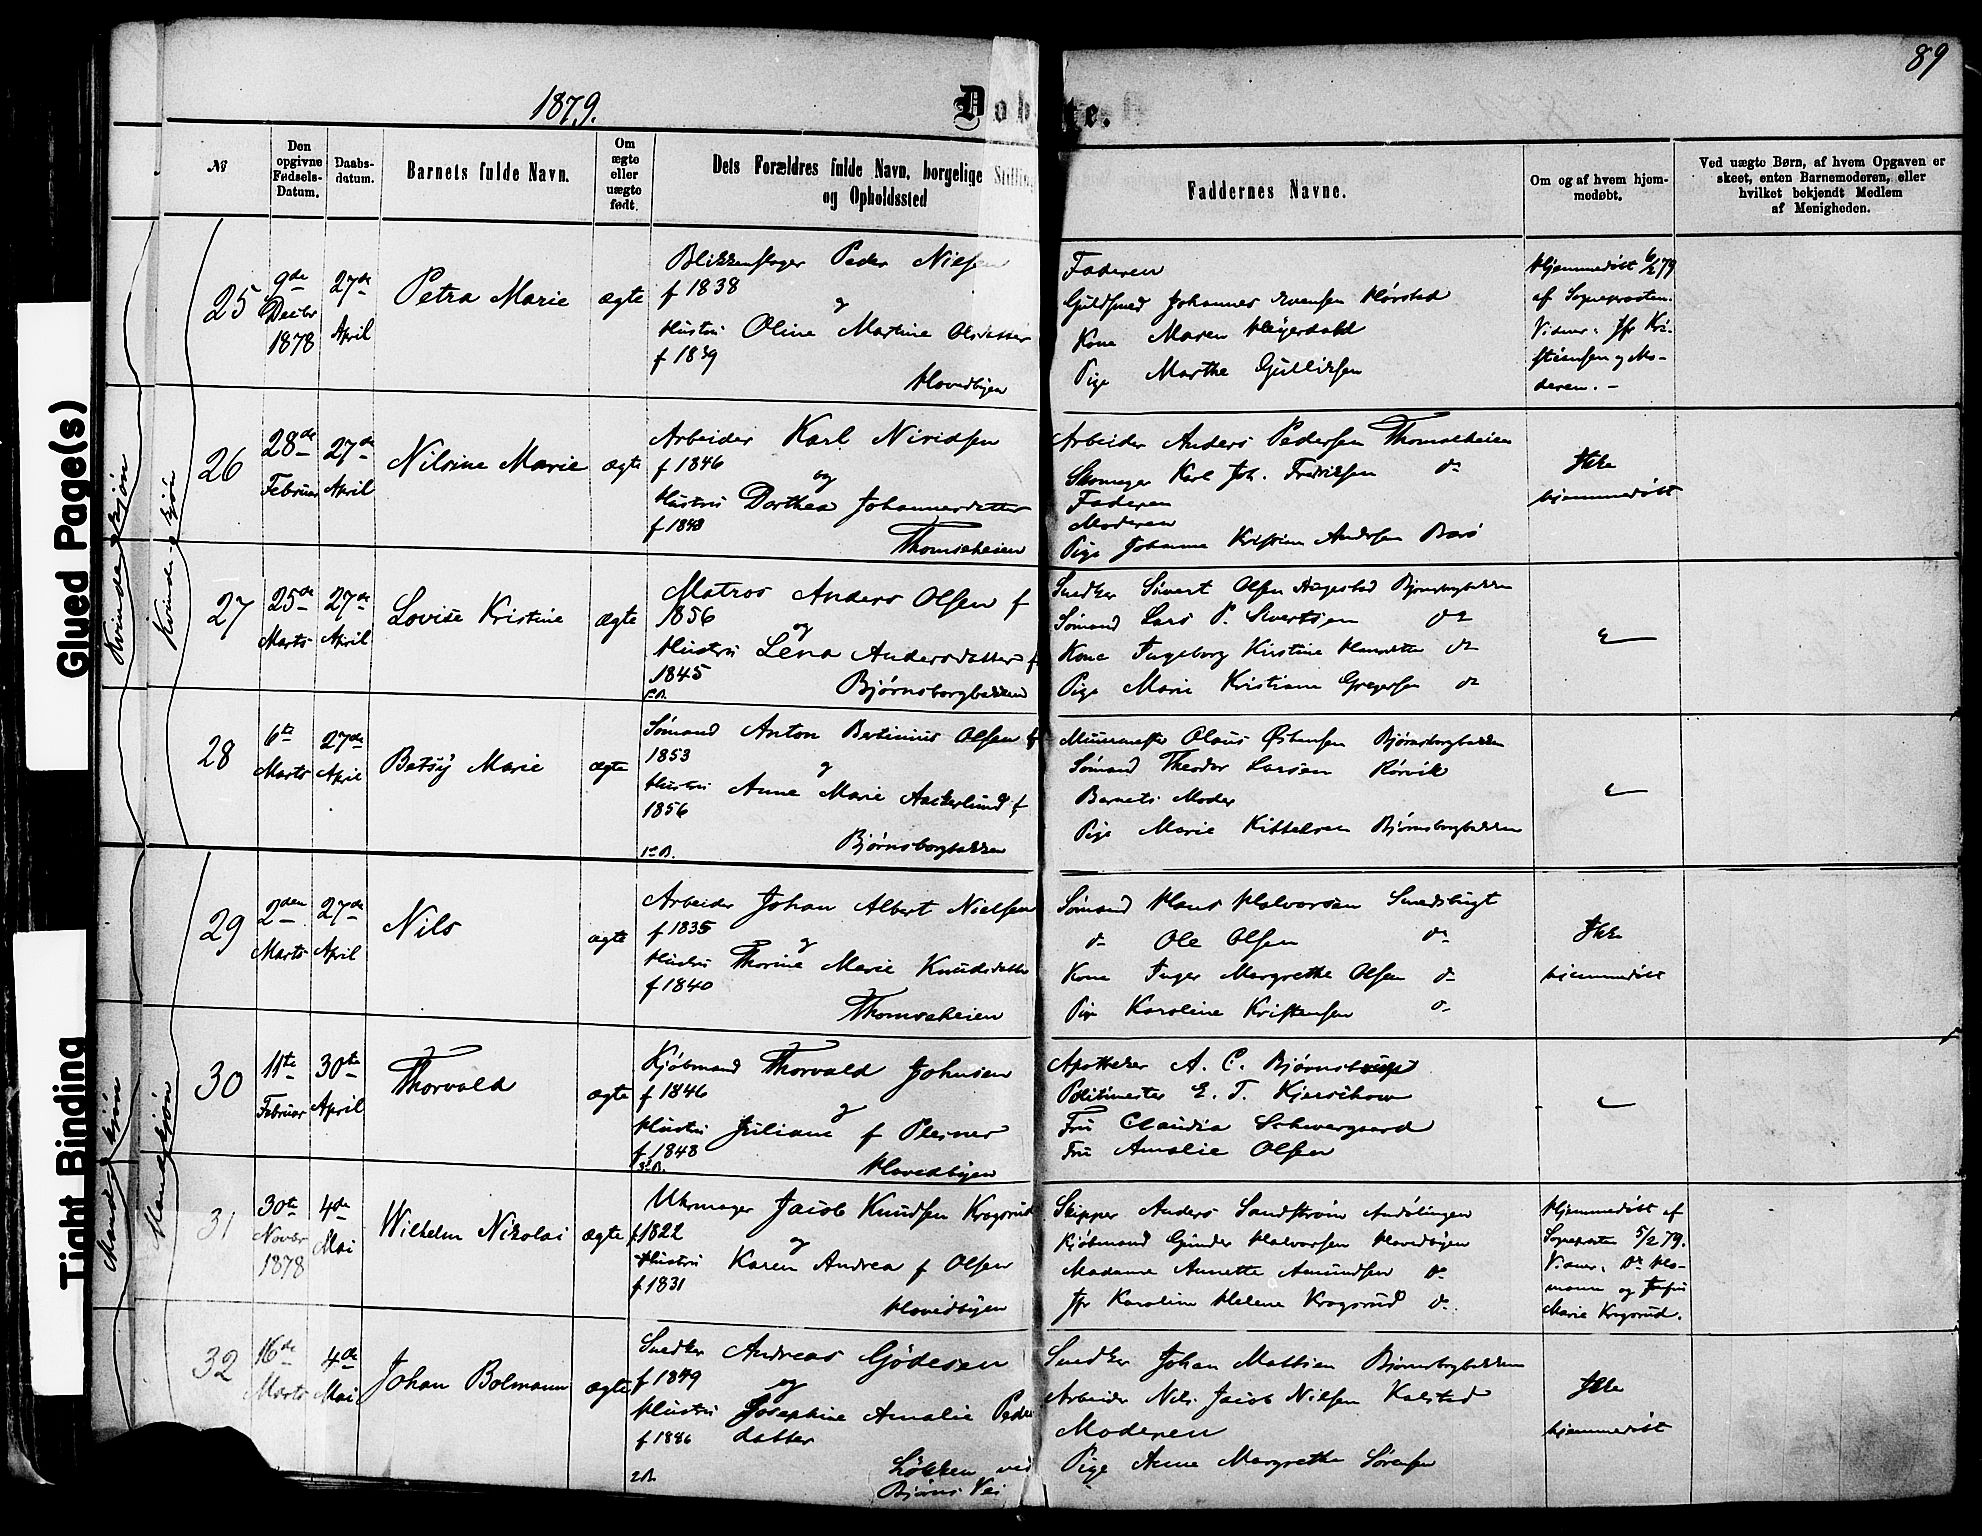 89
1879.
Døbte.
№
Den opgivne Fødsels-Datum.
Daabs-datum.
Barnets fulde Navn.
Om ægte eller uægte født.
Dets Forældres fulde Navn, borgelige Stilling
og Opholdssted
Faddernes Navne.
Om og af hvem hjem-
medøbt.
Ved uægte Børn, af hvem Opgaven er
skeet, enten Barnemoderen, eller
hvilket bekjendt Medlem
af Menigheden.
Glued Page(s)
Tight Binding
Kvindekjøn
Kvindekjøn
Mandkjøn
Mandkjøn
25
9de Decbr 1878
27de April
Petra Marie
ægte
Blikkenslager Peder Nielsen
f 1838
og
Hustru Oline Martine Olsdatter
f 1839
Hovedbyen
Faderen
Guldsmed Johannes Evensen Hørsted
Kone Maren Heyerdahl
Pige Marthe Gulliksen
Hjemmedøbt 6/2 79
af Sognepresten.
Vidner: Jfr Kri-
stiansen og Mo-
deren. –
26
28de Februar
27de April
Nilsine Marie
ægte
Arbeider Karl Niridsen
f 1846
og
Hustru Dorthea Johannesdatter
f 1843
Thomseheien
Arbeider Anders Pedersen Thomseheien
Skomager Karl Joh. Fredriksen do
Faderen
Moderen
Pige Johanne Kristine Andersen Barø
Ikke
hjemmedøbt
27
25de Marts
27de April
Lovise Kristine
ægte
Matros Anders Olsen f
1856
og
Hustru Lena Andersdatter f
1845
Bjørnsborgbakken
Snedker Sivert Olsen Aagestad Bjørnsborgbakken
Sømand Lars P. Sivertsen do
Kone Ingeborg Kirstine Hansdatter do
Pige Marie Kristiane Gregersen do
28
6te Marts
27de April
Betsy Marie
ægte
Sømand Anton Bertinius Olsen f
1853
og
Hustru Anne Marie Aackerlund f
1856
1ste B.
Bjørnsborgbakken
Murmester Olaus Østensen Bjørnsborgbakken
Sømand Theodor Larsen Rørvik
Barnets Moder
Pige Marie Kittelsen Bjørnsborgbakken
29
2den Marts
27de April
Nils
ægte
Arbeider Johan Albert Nielsen
f 1835
og
Hustru Thorine Marie Knudsdatter
f 1840
Thomseheien
Sømand Hans Halvorsen Smedsbugt
do Ole Olsen do
Kone Inger Margrethe Olsen do
Pige Karoline Kristensen do
Ikke
hjemmedøbt
30
11te Februar
30te April
Thorvald
ægte
Kjøbmand Thorvald Johnsen
f 1846
og
Hustru Juliane f Plesner
f 1848
3 B.
Hovedbyen
Apotheker A. C. Bjørnstrup
Politimester E. T. Kjerschow
Fru Claudia Schweigaard
Fru Amalie Olsen
31
30te Novbr 1878
4de Mai
Wilhelm Nikolai
ægte
Uhrmager Jacob Knudsen Kragsrud
f 1822
og
Hustru Karen Andrea f Olsen
f 1831
Hovedbyen
Skipper Anders Sandstrøm Andølingen
Kjøbmand Gunder Halvorsen Hovedbyen
Madame Annette Amundsen do
Jfr Karoline Helene Kragsrud do.
Hjemmedøbt af
Sognepresten 5/2 79.
Marie Kragsrud.
32
16de Marts
4de Mai
Johan Bolmann
ægte
Snedker Andreas Gjødesen
f 1849
og
Hustru Josephine Amalie Peders
f 1846 datter
2 B.
Løkken ved
Bjørns Vei
Snedker Johan Mattsen Bjørnsborgbakken
Arbeider Nils Jacob Nilsen Kalstad
Moderen
Pige Anne Margrethe Sørensen
Ikke
hjemmedøbt